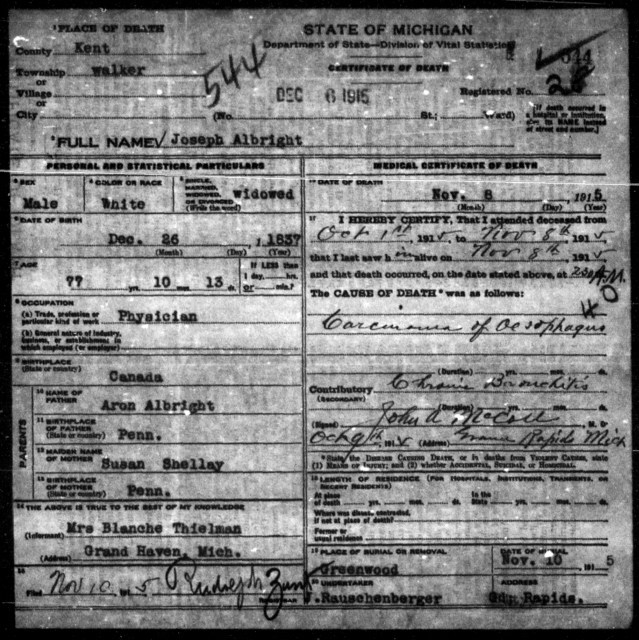 PLACE OF DEATH
County Kent
Township walker
or
Village
or
City
544
STATE OF MICHIGAN
Department of State—Division of Vital Statistics
CERTIFICATE OF DEATH
DEC 6 1915
Registered No.
(No. St.; Ward)
[If death occurred in a hospital or institution, give its NAME instead of street and number.]
FULL NAME Joseph Albright
PERSONAL AND STATISTICAL PARTICULARS
SEX Male
COLOR OR RACE White
SINGLE, MARRIED, WIDOWED, OR DIVORCED (Write the word) widowed
DATE OF BIRTH
Dec. 26 1837
(Month) (Day) (Year)
AGE
77 yrs. 10 mos. 13 ds.
If LESS than
1 day, hrs.
or min.?
OCCUPATION
(a) Trade, profession or particular kind of work Physician
(b) General nature of industry, business, or establishment in which employed (or employer)
BIRTHPLACE
(State or country) Canada
PARENTS
10 NAME OF FATHER Aron Albright
11 BIRTHPLACE OF FATHER (State or country) Penn.
12 MAIDEN NAME OF MOTHER Susan Shellay
13 BIRTHPLACE OF MOTHER (State or country) Penn.
14 THE ABOVE IS TRUE TO THE BEST OF MY KNOWLEDGE
(Informant) Mrs Blanche Thielman
(Address) Grand Haven, Mich.
15
Filed Nov 10 191 5 Rudolph
REGISTRAR
MEDICAL CERTIFICATE OF DEATH
16 DATE OF DEATH
Nov. 8 1915
(Month) (Day) (Year)
17 I HEREBY CERTIFY, That I attended deceased from
Oct 1st, 191 5, to Nov 8th, 191 5
that I last saw h im alive on Nov 8th, 191 5
and that death occurred, on the date stated above, at 2:30 A.M.
The CAUSE OF DEATH* was as follows:
40
Carcinoma of Oesophagus
(Duration) yrs. mos. ds.
Contributory Chronic Bronchitis
(SECONDARY)
(Duration) yrs. mos. ds.
(Signed) John A. M. D.
Oct 9th, 191 5 (Address) Grand Rapids Mich
*State the DISEASE CAUSING DEATH, or in deaths from VIOLENT CAUSES, state
(1) MEANS OF INJURY; and (2) whether ACCIDENTAL, SUICIDAL, or HOMICIDAL.
18 LENGTH OF RESIDENCE (FOR HOSPITALS, INSTITUTIONS, TRANSIENTS, OR RECENT RESIDENTS)
At place of death yrs. mos. ds. In the State yrs. mos. ds.
Where was disease contracted, if not at place of death?
Former or usual residence
19 PLACE OF BURIAL OR REMOVAL Greenwood
DATE OF BURIAL Nov. 10 1915
20 UNDERTAKER J.Rauschenberger
ADDRESS Gdn Rapids.